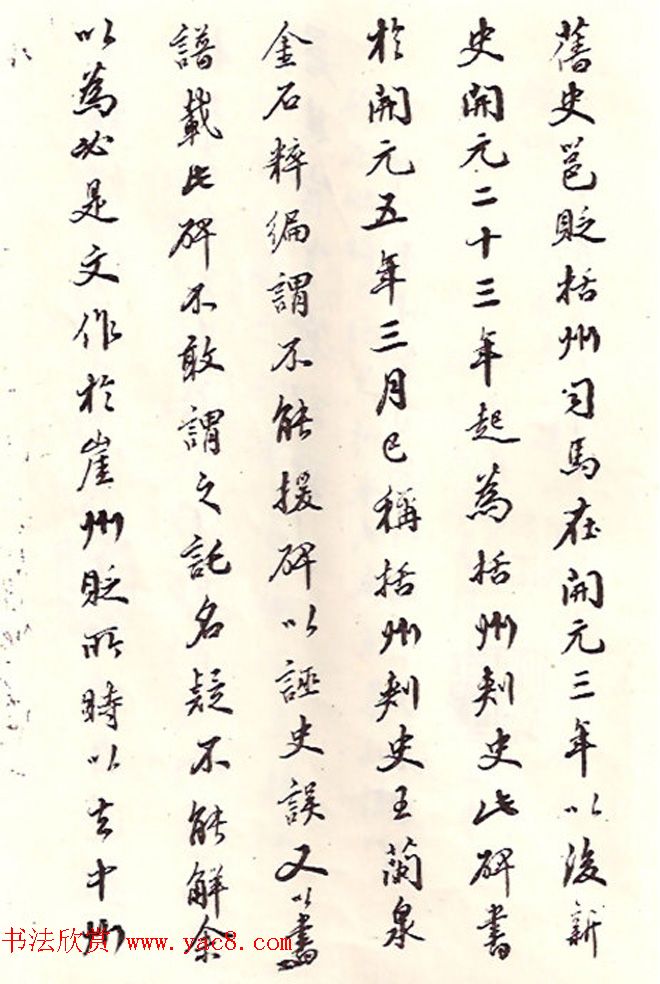 舊史邕貶括州司馬在開元三年以後新
史開元二十三年起為括州刺史此碑書
於開元五年三月已稱括州刺史王蘭泉
金石粹編謂不能援碑以誣史誤又以書
譜載此碑不敢謂之託名疑不能解余
以為必是文作於崖州貶所時以去中州
书法欣赏 www.yac8.com